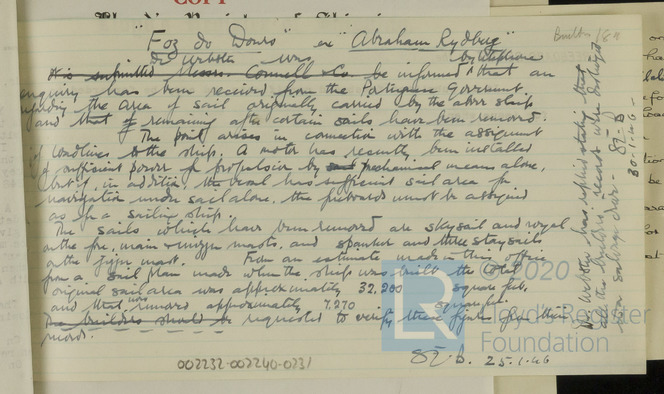 COPY
"Foz do Douro" ex "Abraham Rydberg"
Built 18
Dr Webster was by telephone
It is submitted Messrs. Connell & Co. be informed that an
enquiry has been received from the Portuguese Government
regarding the area of sail originally carried by the above ship
and that remaining after certain sails have been removed.
The point arises in connection with the assignment
of loadlines to the ship. A motor has recently been installed
of sufficient power for propulsion by mechanical means alone,
but if, in addition, the vessel has sufficient sail area for
navigation under sail alone, the freeboards must be assigned
as for a sailing ship.
The sails which have been removed are skysail and royal
on the fore, main & mizzen masts, and spanker and three staysails
on the jigger mast. From an estimate made in this office
from a sail plan made when the ship was built the total
original sail area was approximately 32,200 square feet,
and that removed was approximately 7,270 square feet.
The builders should be requested to verify these figures from their
records.
25.1.46
002232-002240-0231
Dr Webster has replied stating that
all the builders records were destroyed
by enemy
30-1-46-
©2020
LR
Lloyd's Register
Foundation